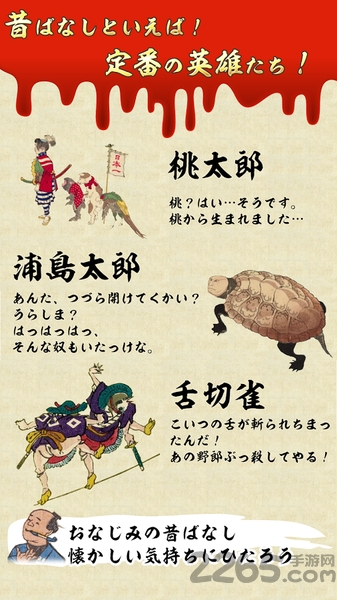 昔ばなしといえば！
定番の英雄たち！
日本一
桃太郎
桃？はい…そうです。
桃から生まれました…
浦島太郎
あんた、つづら開けてくかい？
うらしま？
はっはっはっ、
そんな奴もいたっけな。
舌切雀
こいつの舌が斬られちまっ
たんだ！
あの野郎ぶっ殺してやる！
おなじみの昔ばなし
懐かしい気持ちにひたろう
2265手游网
2265.com